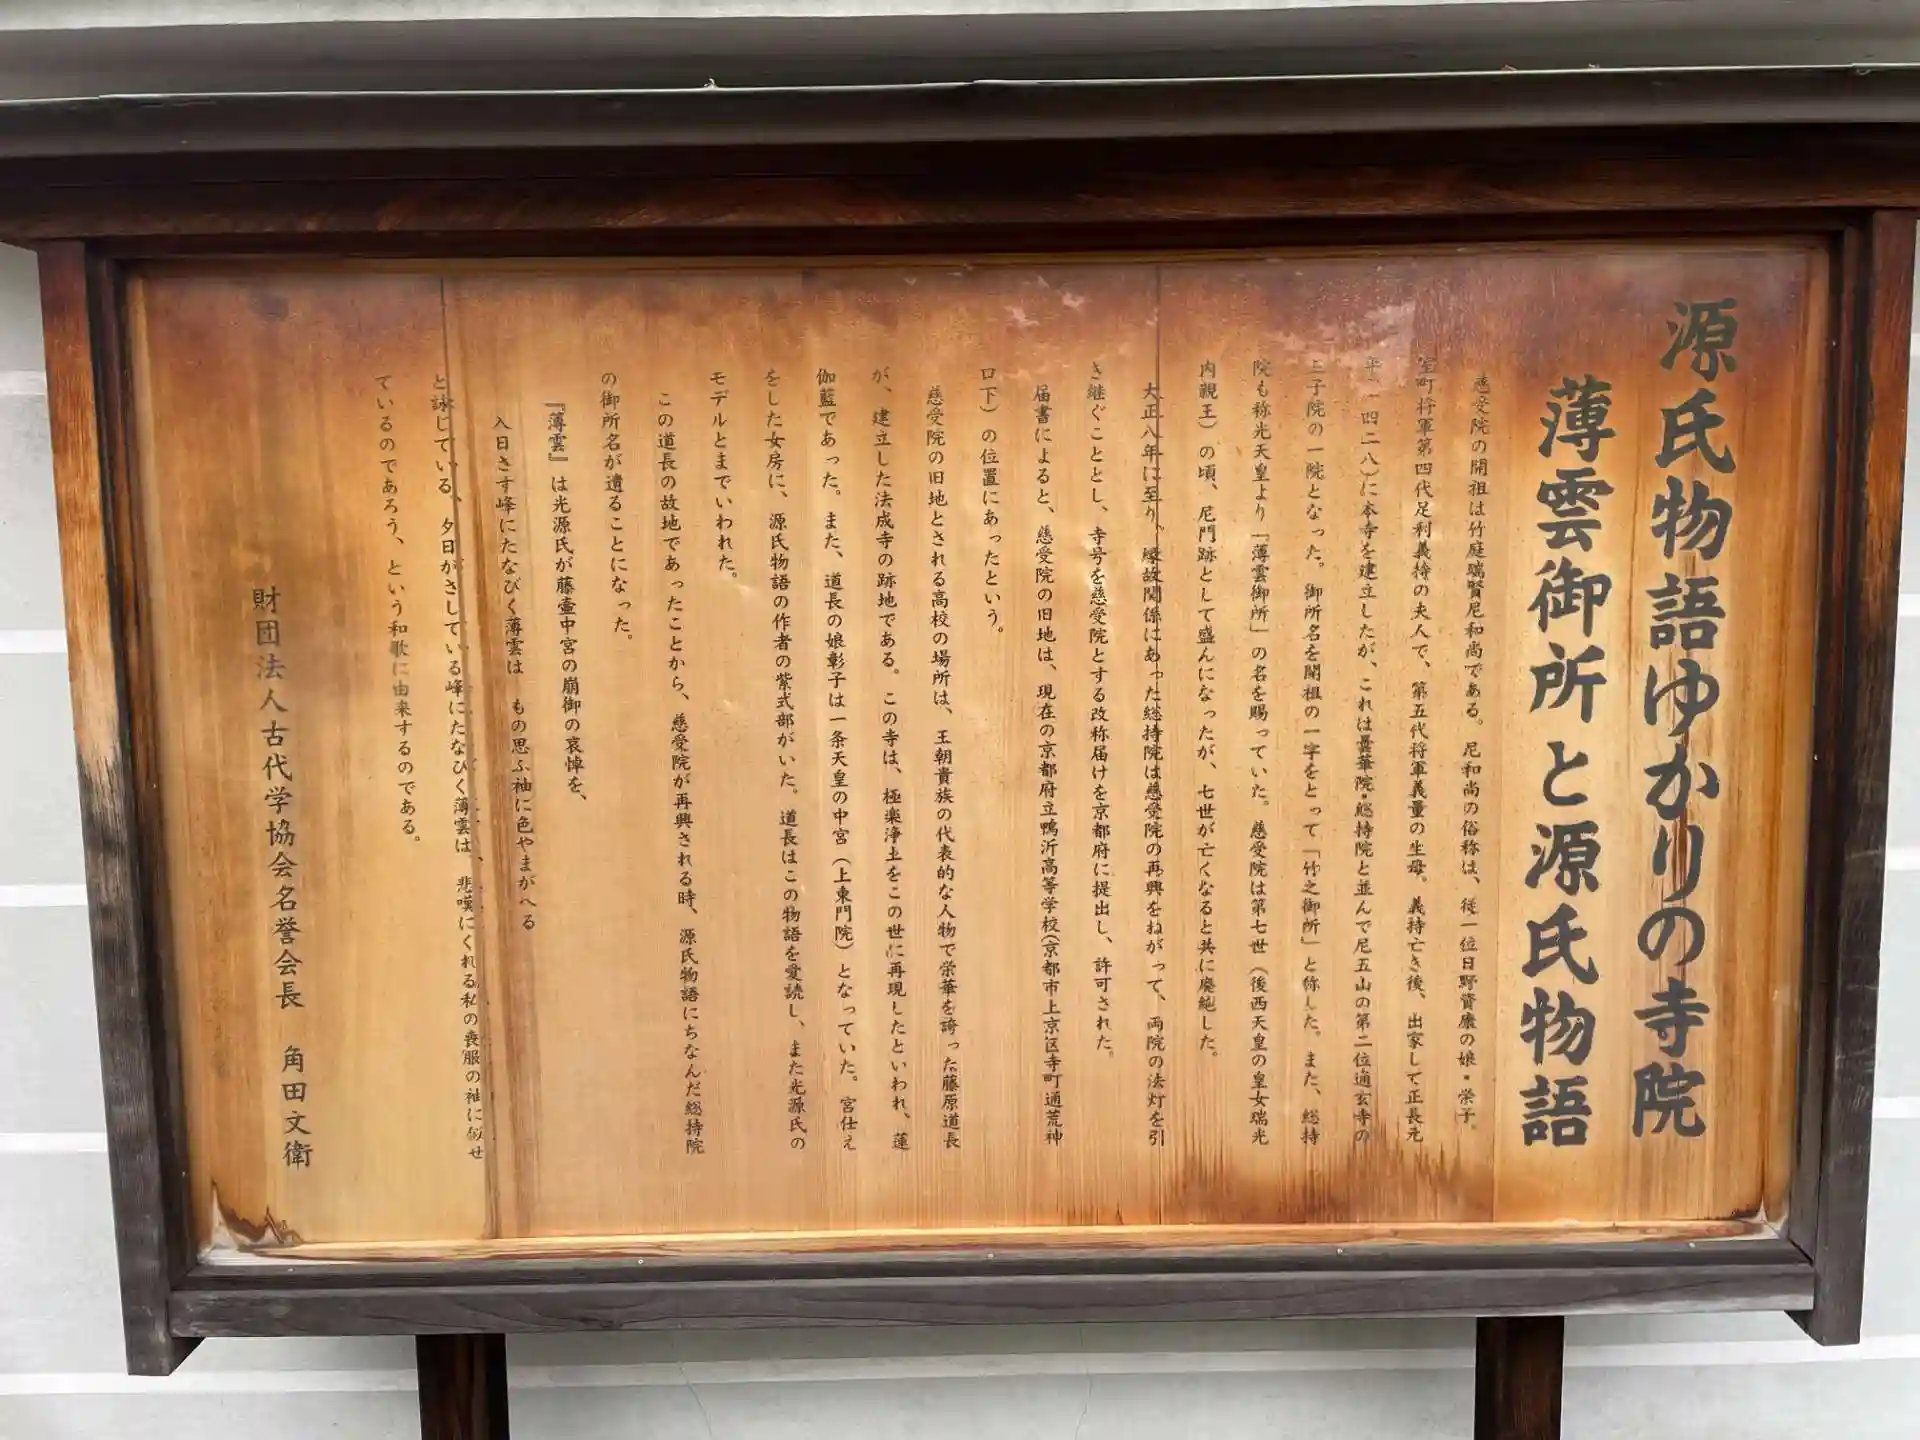 源氏物語ゆかりの寺院
薄雲御所と源氏物語
慈受院の開祖は竹庭瑞賢尼和尚である。尼和尚の俗称は、従一位日野資康の娘・栄子。
室町将軍第四代足利義持の夫人で、第五代将軍義量の生母。義持亡き後、出家して正長元
年(一四二八)に本寺を建立したが、これは曇華院・総持院と並んで尼五山の第二位通玄寺の
三子院の一院となった。御所名を開祖の一字をとって「竹之御所」と称した。また、総持
院も称光天皇より「薄雲御所」の名を賜っていた。慈受院は第七世(後西天皇の皇女瑞光
内親王)の頃、尼門跡として盛んになったが、七世が亡くなると共に廃絶した。
大正八年に至り、縁故関係にあった総持院は慈受院の再興をねがって、両院の法灯を引
き継ぐこととし、寺号を慈受院とする改称届けを京都府に提出し、許可された。
届書によると、慈受院の旧地は、現在の京都府立鴨沂高等学校(京都市上京区寺町通荒神
口下)の位置にあったという。
慈受院の旧地とされる高校の場所は、王朝貴族の代表的な人物で栄華を誇った藤原道長
が、建立した法成寺の跡地である。この寺は、極楽浄土をこの世に再現したといわれ、蓮
伽藍であった。また、道長の娘彰子は一条天皇の中宮(上東門院)となっていた。宮仕え
をした女房に、源氏物語の作者の紫式部がいた。道長はこの物語を愛読し、また光源氏の
モデルとまでいわれた。
この道長の故地であったことから、慈受院が再興される時、源氏物語にちなんだ総持院
の御所名が遺ることになった。
『薄雲』は光源氏が藤壷中宮の崩御の哀悼を、
入日さす峰にたなびく薄雲は　もの思ふ袖に色やまがへる
と詠じている、夕日がさしている峰にたなびく薄雲は、悲嘆にくれる私の喪服の袖に似せ
ているのであろう、という和歌に由来するのである。
財団法人古代学協会名誉会長　角田文衛